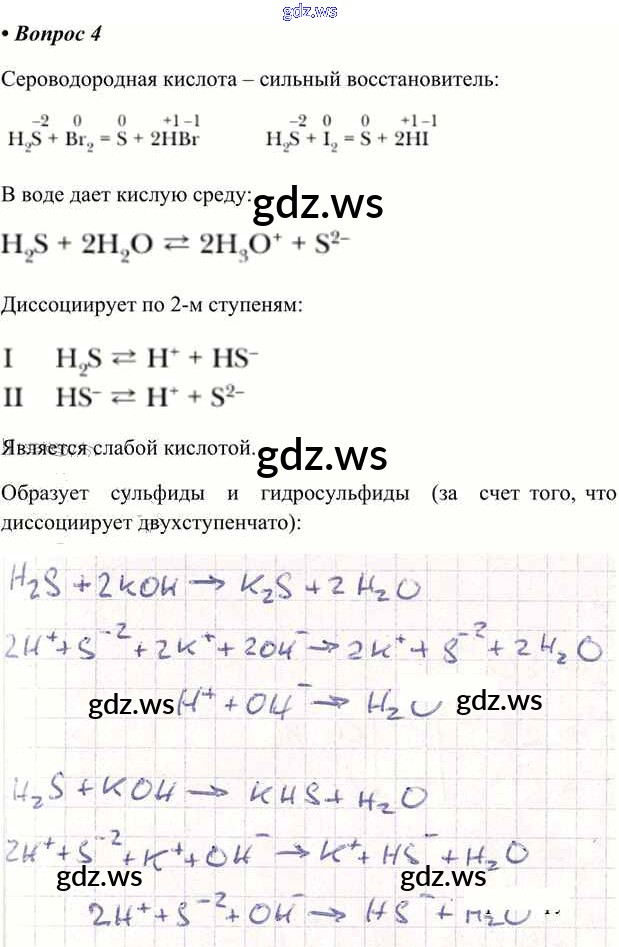 gdz.ws
• Вопрос 4
Сероводородная кислота – сильный восстановитель:
−2 0 0 +1 −1 −2 0 0 +1 −1
H₂S + Br₂ = S + 2HBr H₂S + I₂ = S + 2HI
В воде дает кислую среду:
gdz.ws
H₂S + 2H₂O ⇄ 2H₃O⁺ + S²⁻
Диссоциирует по 2-м ступеням:
I H₂S ⇄ H⁺ + HS⁻
II HS⁻ ⇄ H⁺ + S²⁻
Является слабой кислотой.
gdz.ws
Образует сульфиды и гидросульфиды (за счет того, что
диссоциирует двухступенчато):
H₂S + 2KOH → K₂S + 2H₂O
2H⁺ + S⁻² + 2K⁺ + 2OH⁻ → 2K⁺ + S⁻² + 2H₂O
gdz.ws H⁺ + OH⁻ → H₂O gdz.ws
H₂S + KOH → KHS + H₂O
2H⁺ + S⁻² + K⁺ + OH⁻ → K⁺ + HS⁻ + H₂O
gdz.ws gdz.ws
2H⁺ + S⁻² + OH⁻ → HS⁻ + H₂O